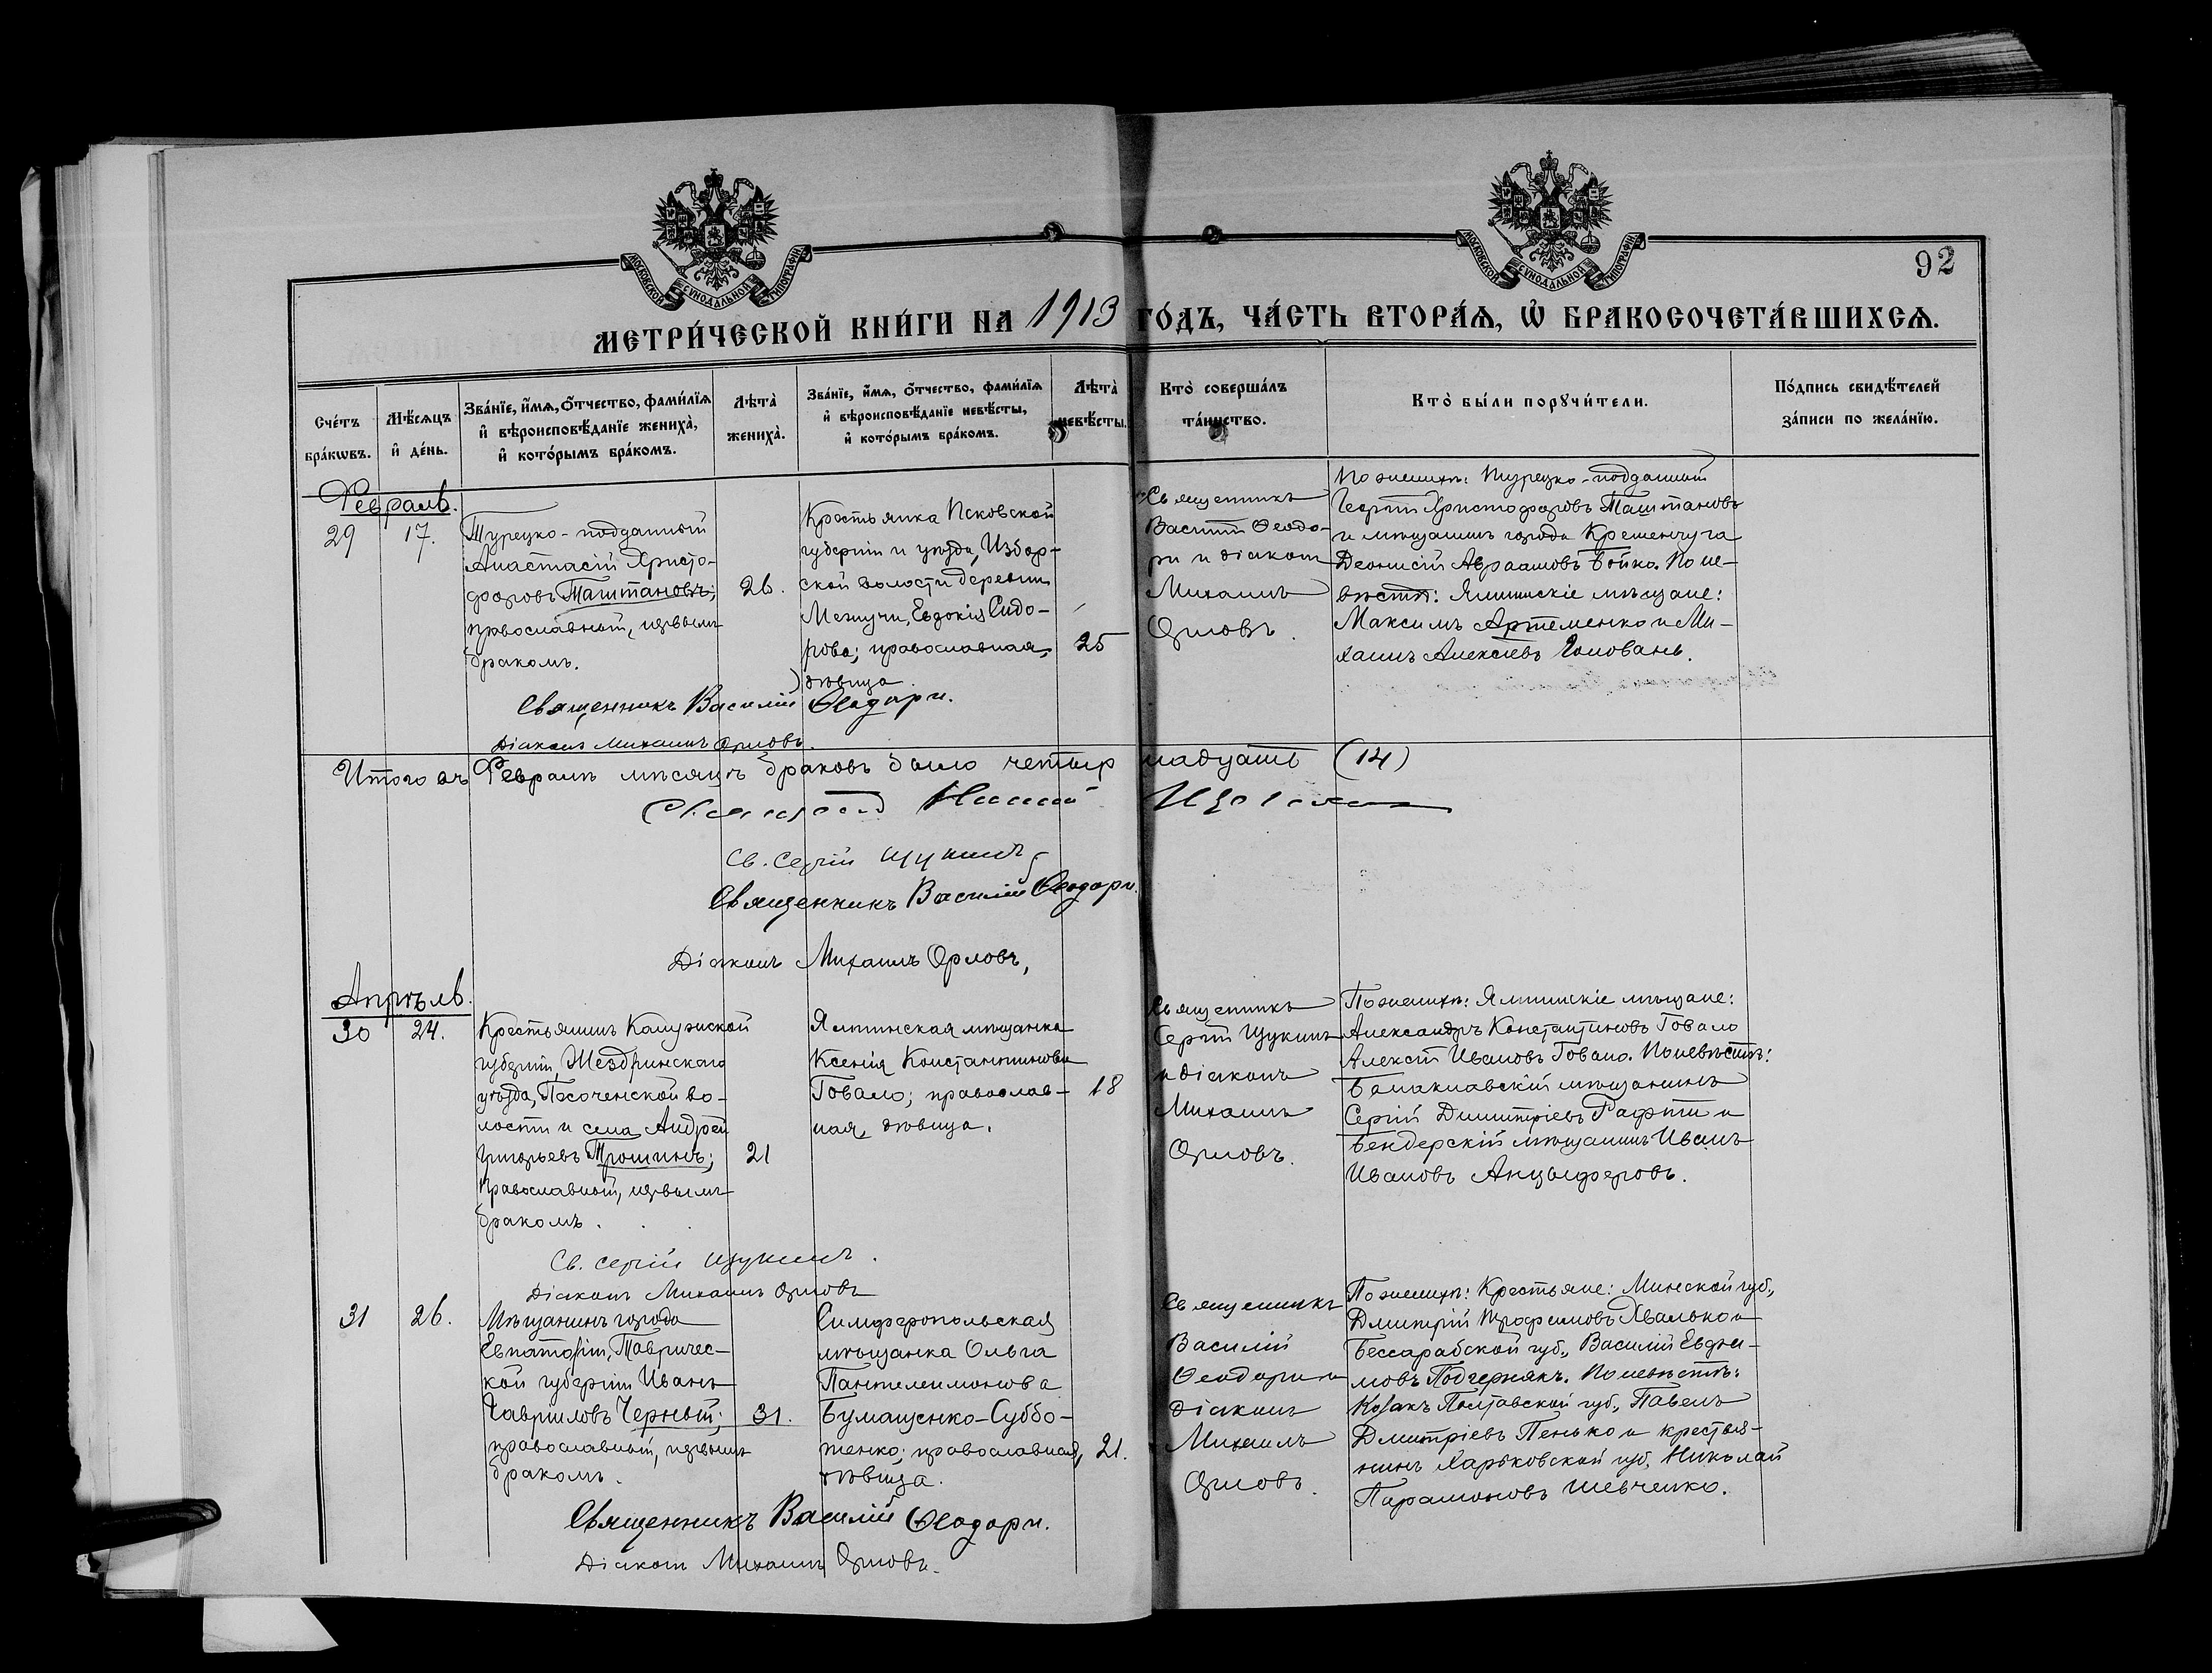 МОСКОВСКОЙ СѴНОДАЛЬНОЙ ТИПОГРАФІИ
МОСКОВСКОЙ СѴНОДАЛЬНОЙ ТИПОГРАФІИ
92
МЕТРИ́ЧЕСКОЙ КНИ́ГИ НА 1913 ГО́ДЪ, ЧА́СТЬ ВТОРА́Ѧ, Ѡ҆ БРАКОСОЧЕТА́ВШИХСѦ.
Сче́тъ
бра́кωвъ.
Мѣ́сяцъ
и҆ де́нь.
Зва́нїе, и҆́мѧ, ѻ҆́тчество, фами́лїѧ
и҆ вѣроисповѣ́данїе жениха̀,
и҆ кото́рымъ бра́комъ.
Лѣта̀
жениха̀.
Зва́нїе, и҆́мѧ, ѻ҆́тчество, фами́лїѧ
и҆ вѣроисповѣ́данїе невѣ́сты,
и҆ кото́рымъ бра́комъ.
Лѣта̀
невѣ́сты.
Кто̀ соверша́лъ
та́инство.
Кто̀ бы́ли порꙋчи́тели.
По́дпись свидѣ́телей
за́писи по жела́нїю.
Февраль.
29
17.
Турецко-подданный
Анастасій Христо-
форовъ Таштановъ;
православный, первымъ
бракомъ.
26.
Крестьянка Псковской
губерніи и уѣзда, Избор-
ской волости деревни
Евдокія Сидо-
рова; православная,
дѣвица.
25
Священникъ
Василій Ѳеодо-
ри и діаконъ
Михаилъ
Орловъ.
По женихѣ: Турецко-подданный
Георгій Христофоровъ Таштановъ
и мѣщанинъ города Кременчуга
Деонисій Авраамовъ Бойко. По не-
вѣстѣ: Ялтинскіе мѣщане:
Максимъ Артеменко и Ми-
хаилъ Алексѣевъ Головань.
Священникъ Василій Ѳеодори.
Діаконъ Михаилъ Орловъ.
Итого въ Февралѣ мѣсяцѣ браковъ было четырнадцать (14)
Св. Сергій Щукинъ
Священникъ Василій Ѳеодори.
Діаконъ Михаилъ Орловъ,
Апрѣль.
30
24.
Крестьянинъ Калужской
губерніи, Жиздринскаго
уѣзда, Песоченской во-
лости и села Андрей
Григорьевъ Трошинъ;
православный, первымъ
бракомъ.
21
Ялтинская мѣщанка
Ксенія Константинова
Говало; православ-
ная, дѣвица.
18
Священникъ
Сергій Щукинъ
и діаконъ
Михаилъ
Орловъ.
По женихѣ: Ялтинскіе мѣщане:
Александръ Константиновъ Говало
Алексѣй Ивановъ Говало. По невѣстѣ:
Балаклавскій мѣщанинъ
Сергій Димитріевъ Рафти и
Бендерскій мѣщанинъ Иванъ
Ивановъ Анцыферовъ.
Св. Сергій Щукинъ.
Діаконъ Михаилъ Орловъ
31
26.
Мѣщанинъ города
Евпаторіи, Тавричес-
кой губерніи Иванъ
Гавриловъ Черный;
православный, первымъ
бракомъ.
31.
Симферопольская
мѣщанка Ольга
Пантелеимонова
Бумащенко-Суббо-
тенко; православная,
дѣвица.
21.
Священникъ
Василій
Ѳеодори и
діаконъ
Михаилъ
Орловъ.
По женихѣ: Крестьяне: Минской губ.,
Дмитрій Трофимовъ Хвалько и
Бессарабской губ., Василій Евфи-
мовъ Подгернякъ. По невѣстѣ:
Козакъ Полтавской губ., Павелъ
Дмитріевъ Пенько и крестья-
нинъ Харьковской губ. Николай
Парамоновъ Шевченко.
Священникъ Василій Ѳеодори.
Діаконъ Михаилъ Орловъ.